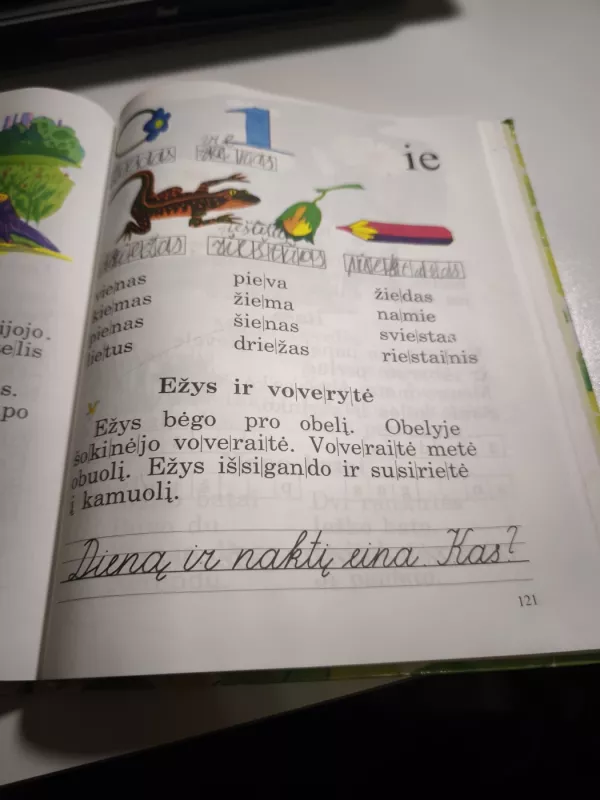 ie
vie|nas
pie|va
žie|das
kie|mas
žie|ma
na|mie
pie|nas
šie|nas
svie|stas
lie|tus
drie|žas
rie|stai|nis
Ežys ir vo|ve|ry|tė
Ežys bėgo pro obelį. Obelyje
šo|ki|nė|jo vo|ve|rai|tė. Vo|ve|rai|tė metė
obuolį. Ežys iš|si|gan|do ir su|si|rie|tė
į kamuolį.
Dieną ir naktį eina. Kas?
121
ijojo.
e|lis
s.
po